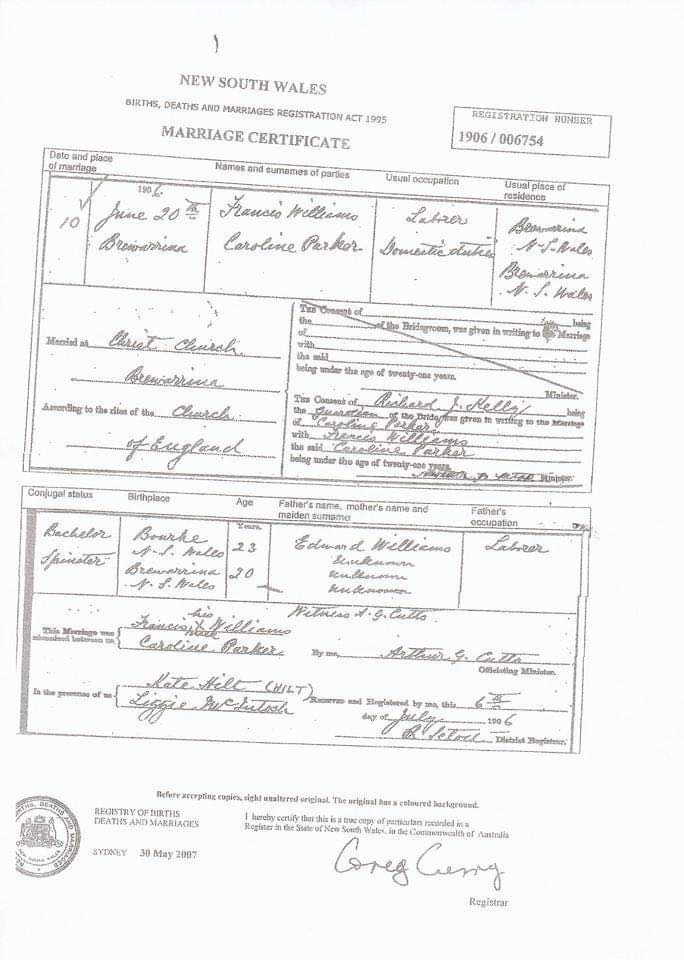 NEW SOUTH WALES
BIRTHS, DEATHS AND MARRIAGES REGISTRATION ACT 1995
MARRIAGE CERTIFICATE
REGISTRATION NUMBER
1906 / 006754
Date and place of marriage
Names and surnames of parties
Usual occupation
Usual place of residence
10
1906
June 20th
Brewarrina
Francis Williams
Caroline Parker
Laborer
Domestic duties
Brewarrina
N. S. Wales
Brewarrina
N. S. Wales
Married at Christ Church
Brewarrina
According to the rites of the Church
of England
The Consent of being
the of the Bridegroom, was given in writing to Marriage
of
with
the said
being under the age of twenty-one years.
Minister.
The Consent of Richard J. Kelly being
the Guardian of the Bride, was given in writing to the Marriage
of Caroline Parker
with Francis Williams
the said Caroline Parker
being under the age of twenty-one years.
Minister.
Conjugal status
Birthplace
Age
Father's name, mother's name and maiden surname
Father's occupation
Years.
Bachelor
Spinster
Bourke
N. S. Wales
Brewarrina
N. S. Wales
23
20
Edward Williams
Unknown
Unknown
Unknown
Laborer
This Marriage was solemnized between us
Francis his x mark Williams
Caroline Parker
Witness A. G. Cutts
By me, Arthur G. Cutts
Officiating Minister.
In the presence of us
Kate Hilt (HILT)
Lizzie McIntosh
Received and Registered by me, this 6th
day of July 1906
District Registrar.
Before accepting copies, sight unaltered original. The original has a coloured background.
REGISTRY OF BIRTHS
DEATHS AND MARRIAGES
SYDNEY 30 May 2007
I hereby certify that this is a true copy of particulars recorded in a
Register in the State of New South Wales, in the Commonwealth of Australia
Greg Curry
Registrar